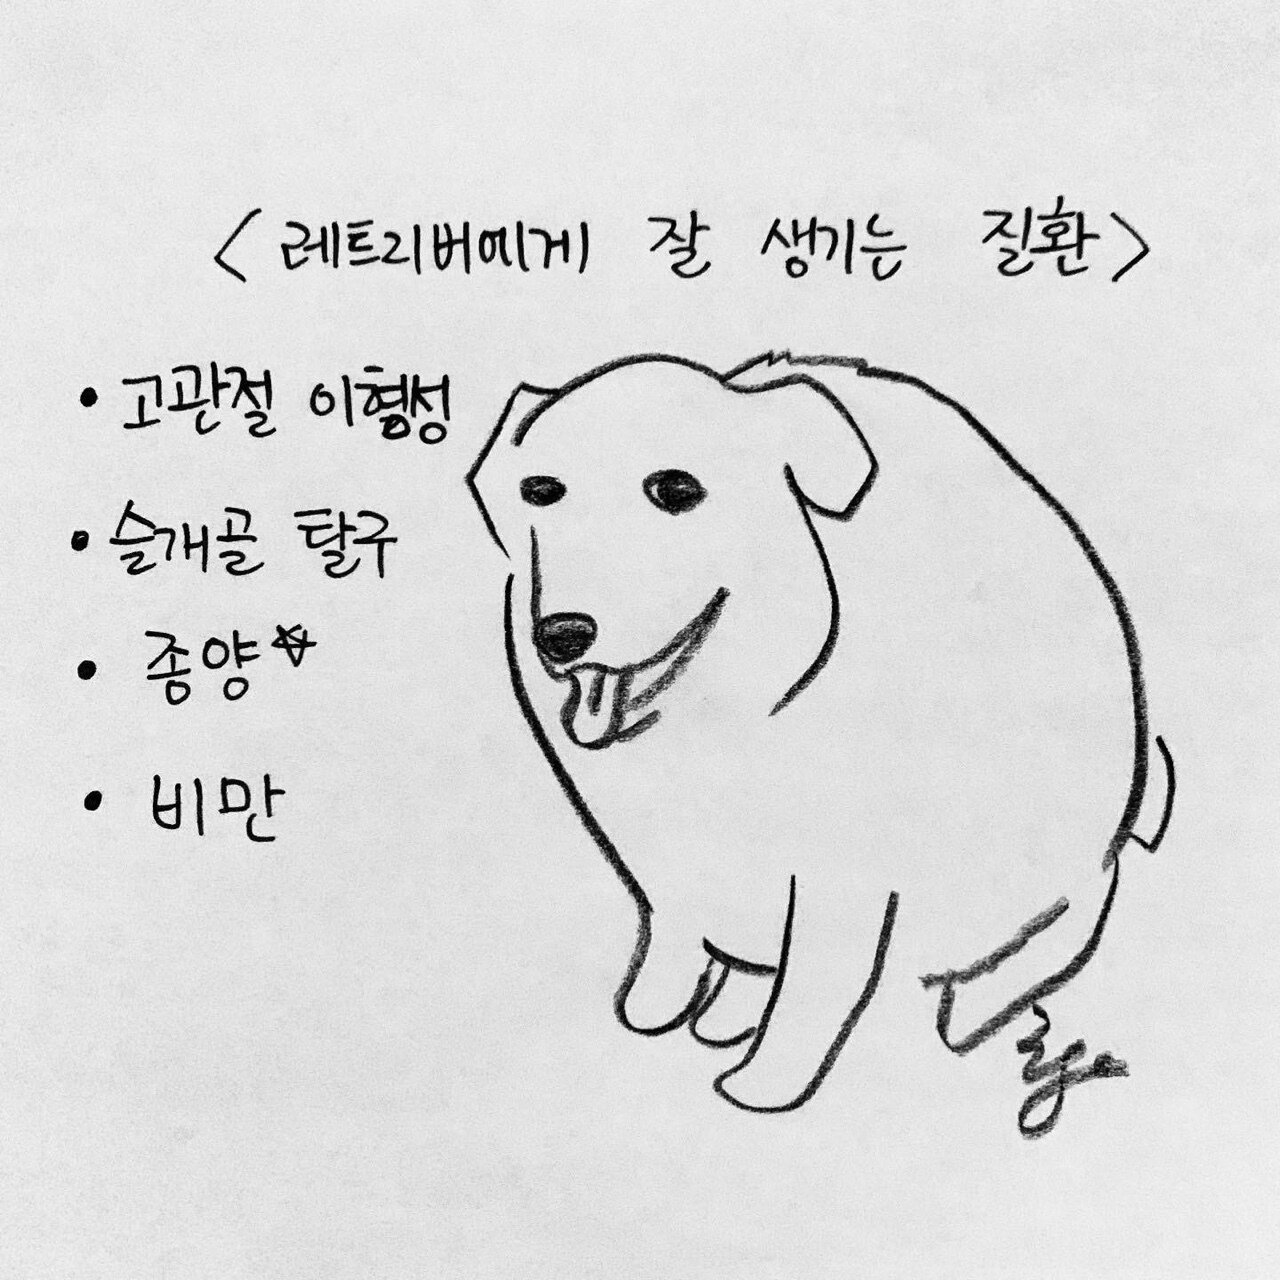 <레트리버에게 잘 생기는 질환>
• 고관절 이형성
• 슬개골 탈구
• 종양☆
• 비만